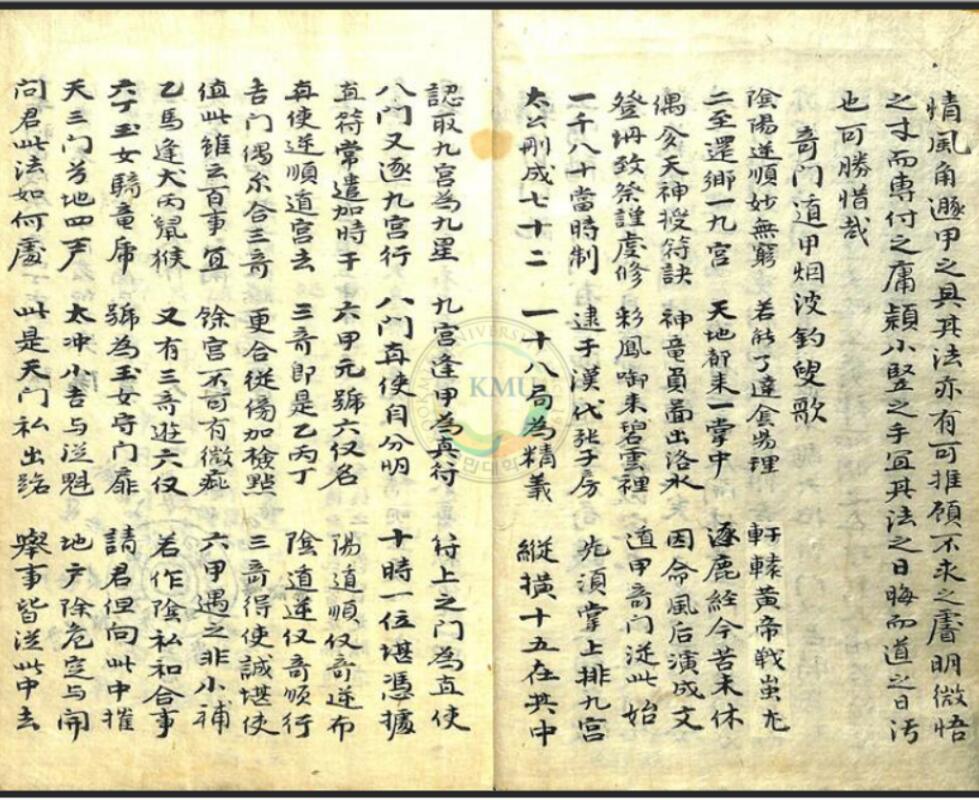 情風角遯甲之具其法亦有可推顧不求之膚明微悟
之才而專付之庸穎小竪之手冝其法之日晦而道之日汚
也可勝惜哉
奇門遁甲烟波釣叟歌
陰陽逆順妙無窮 若能了達陰陽理 軒轅黃帝戰蚩尤
二至還鄉一九宮 天地都来一掌中 逐鹿經今苦未休
偶夣天神授符訣 神竜負啚出洛水 因命風后演成文
登坍致祭謹虔修 彩鳳啣来碧雲裡 遁甲奇門従此始
一千八十當時制 逮于漢代張子房 先須掌上排九宮
太公刪成七十二 一十八局為精義 縱橫十五在其中
認取九宮為九星 九宮逢甲為直符 符上之門為直使
八門又逐九宮行 八門直使自分明 十時一位堪憑據
直符常遣加時干 六甲元號六仪名 陽遁順仪奇逆布
直使逆順遁宮去 三奇即是乙丙丁 陰遁逆仪奇順行
吉門偶尔合三奇 更合従傍加檢點 三奇得使誠堪使
值此雖云百事冝 馀宮不可有微疵 六甲遇之非小補
乙馬逢犬丙鼠猴 又有三奇逰六仪 若作陰私和合事
六丁玉女騎竜虎 號為玉女守門扉 請君但向此中推
天三門兮地四户 太冲小吉与從魁 地户除危定与開
问君此法如何處 此是天門私出路 擧事皆從此中去
KMU